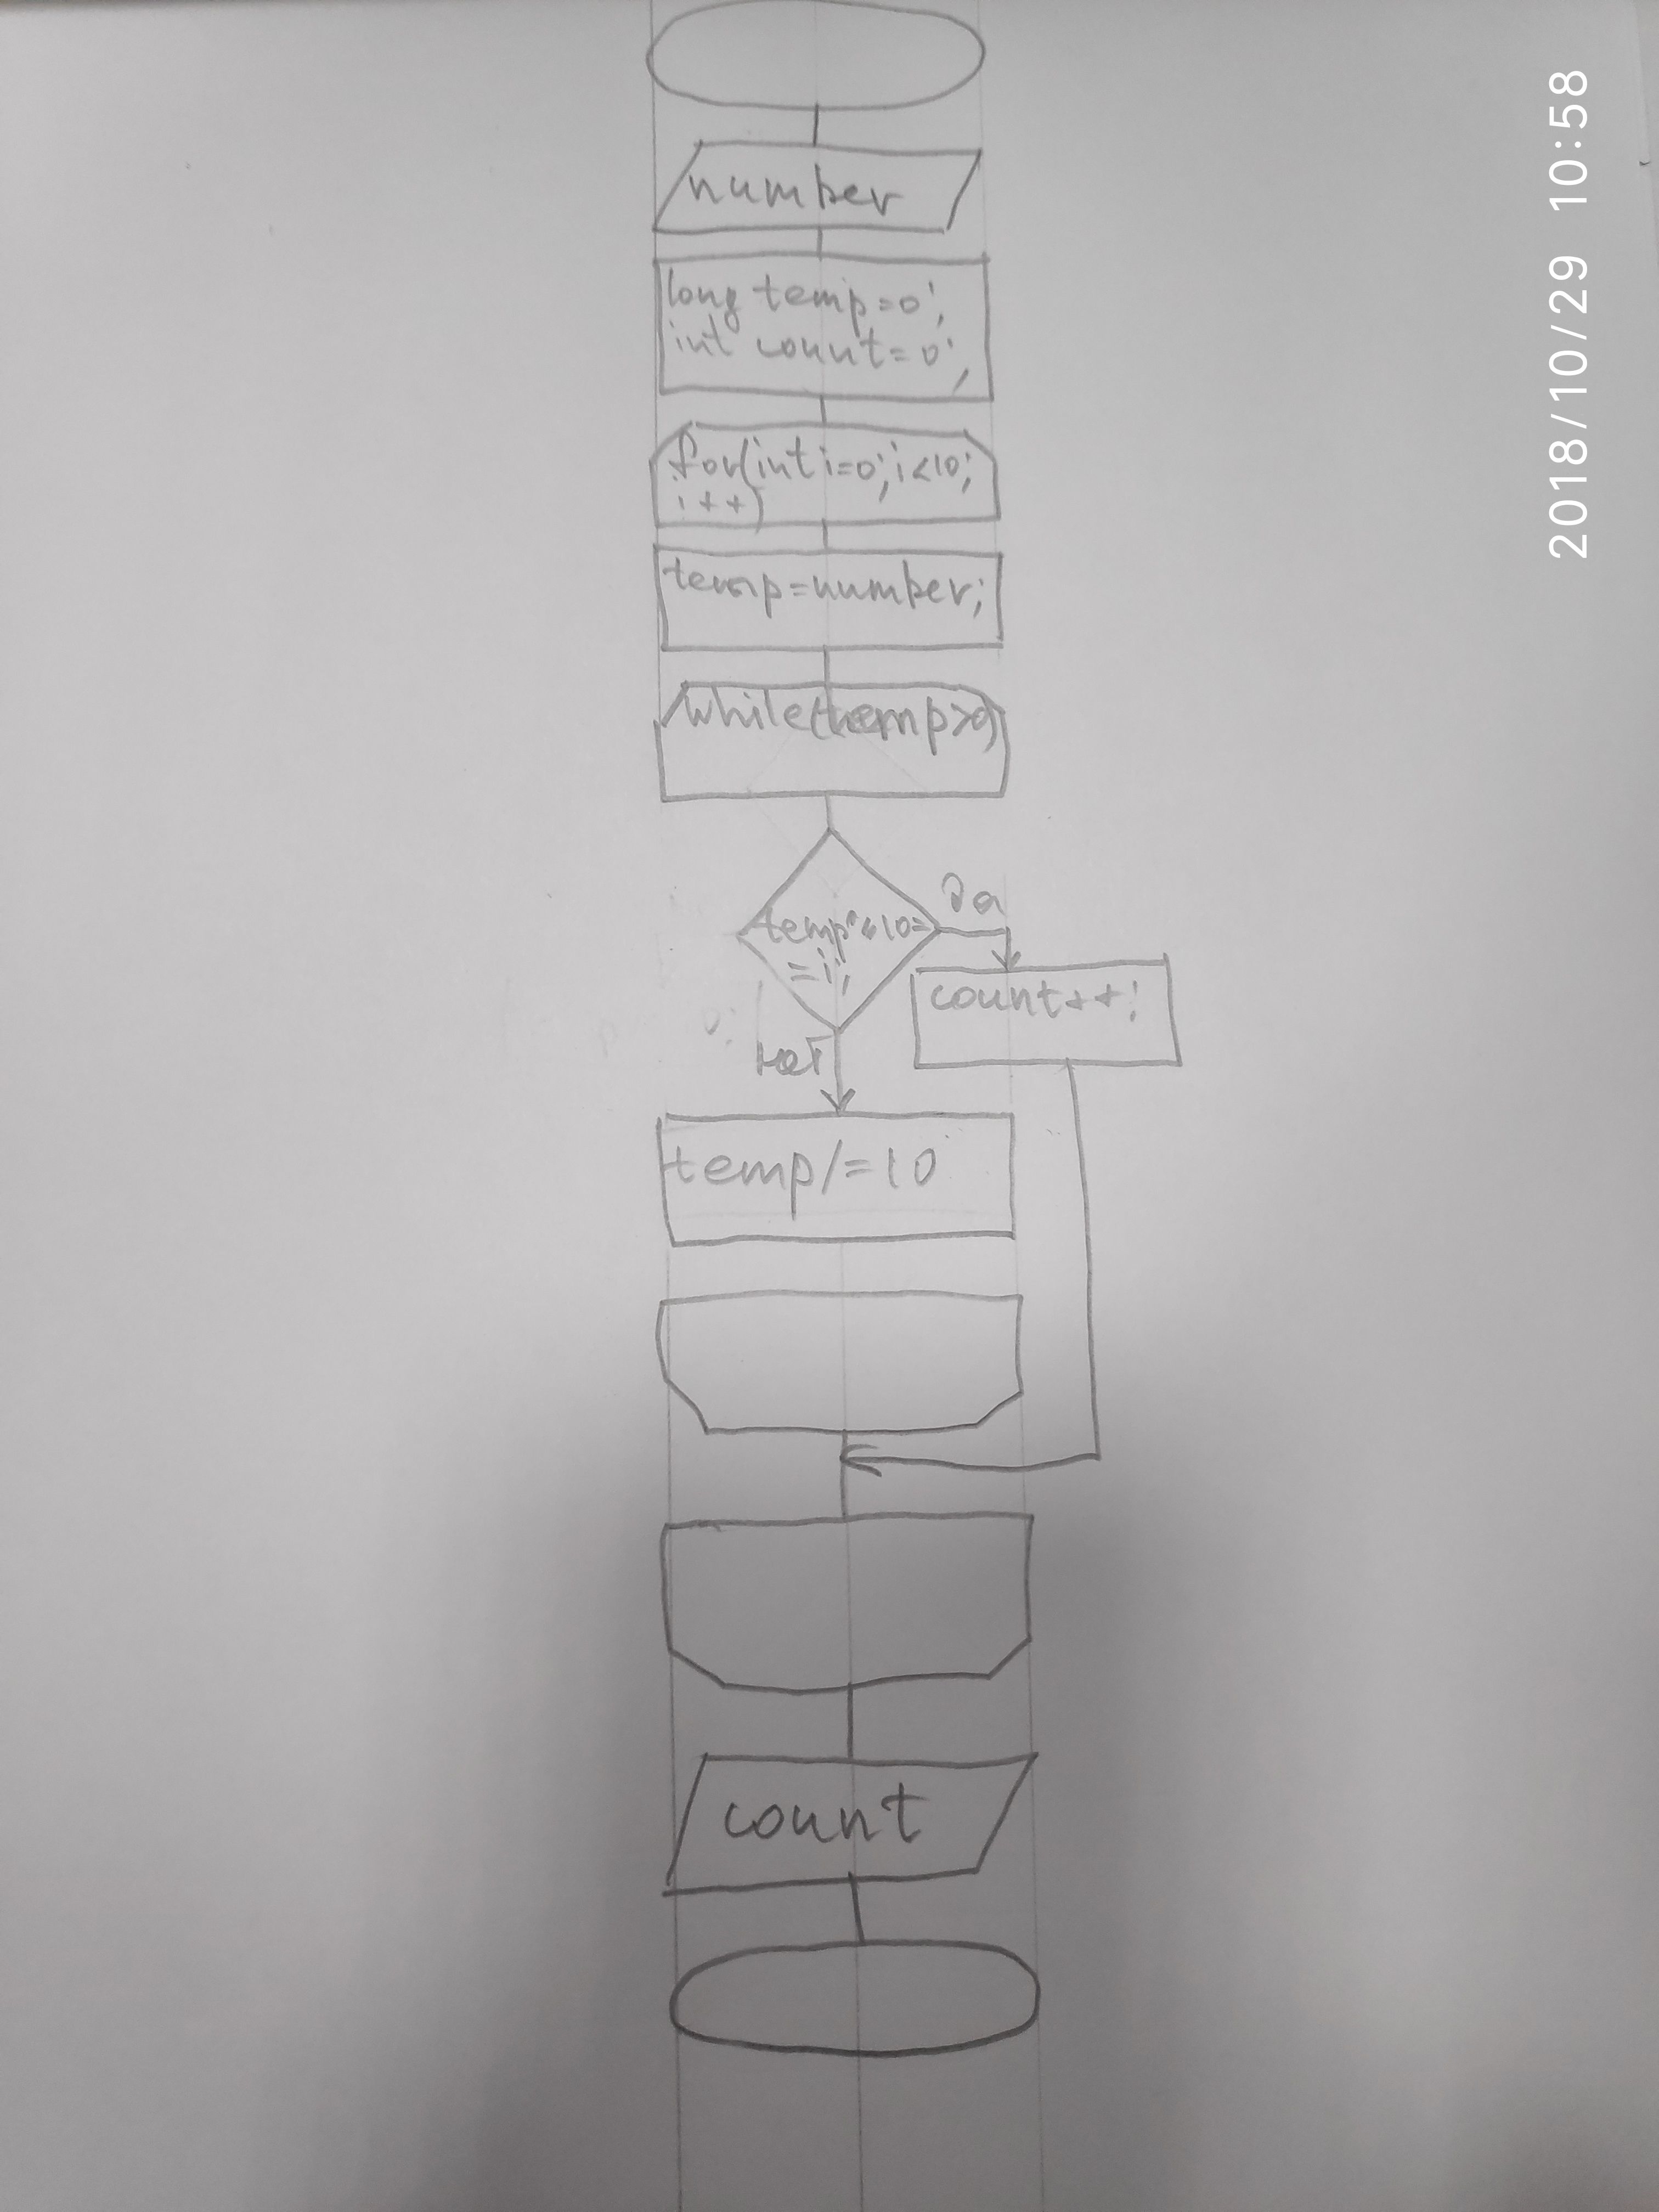 number
long temp=0;
int count=0;
for(int i=0;i<10;
i++)
temp=number;
while(temp>0)
да
temp%10=
=i;
count++;
нет
temp/=10
count
2018/10/29 10:58